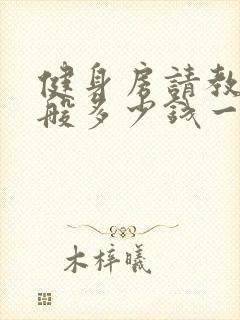 健身房請教
般多少钱一
木梓曦